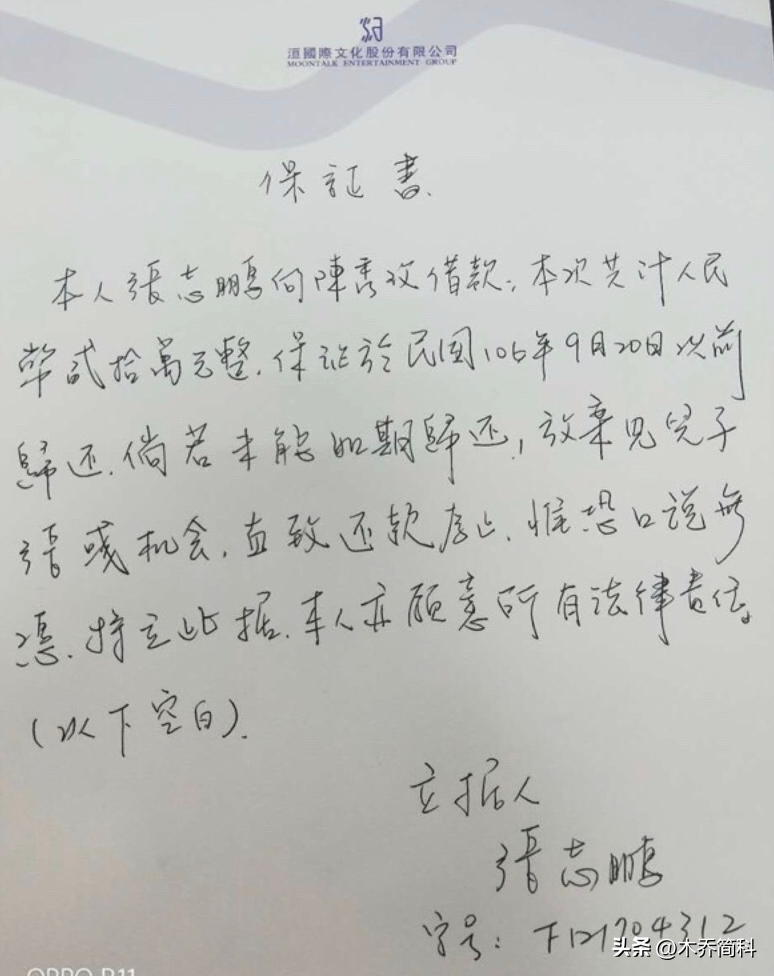 洹國際文化股份有限公司
MOONTALK ENTERTAINMENT GROUP
保証書
本人張志鵬向陳秀玫借款,本次共计人民
幣貳拾萬元整.保証於民国106年9月20日以前
歸还.倘若未能如期歸还,放棄见兒子
張彧机会,直致还款为止.惟恐口说無
憑.特立此据.本人亦願意所有法律責任。
(以下空白).
立据人
張志鵬
字号:F121704312
头条 @木乔简科
OPPO R11